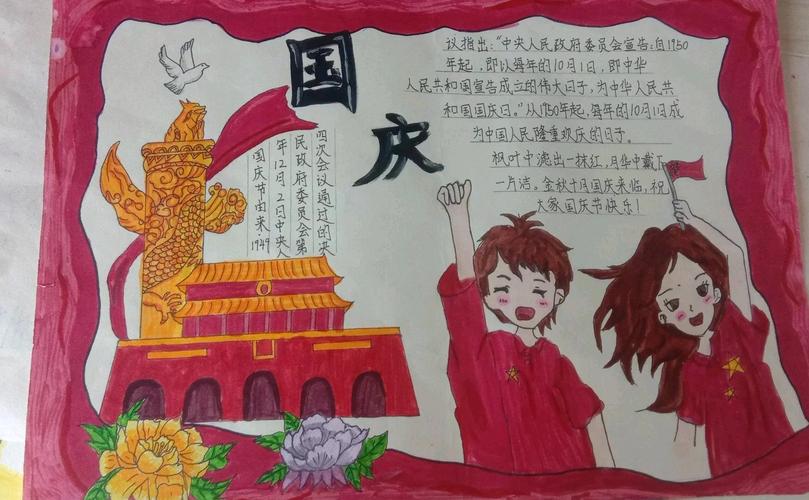 国庆
国庆节由来:1949
年12月2日中央人
民政府委员会第
四次会议通过的决
议指出:“中央人民政府委员会宣告:自1950
年起,即以每年的10月1日,即中华
人民共和国宣告成立的伟大日子,为中华人民共
和国国庆日。”从1950年起,每年的10月1日成
为中国人民隆重欢庆的日子。
枫叶中滤出一抹红,月华中戴下
一片洁。金秋十月国庆来临,祝
大家国庆节快乐!